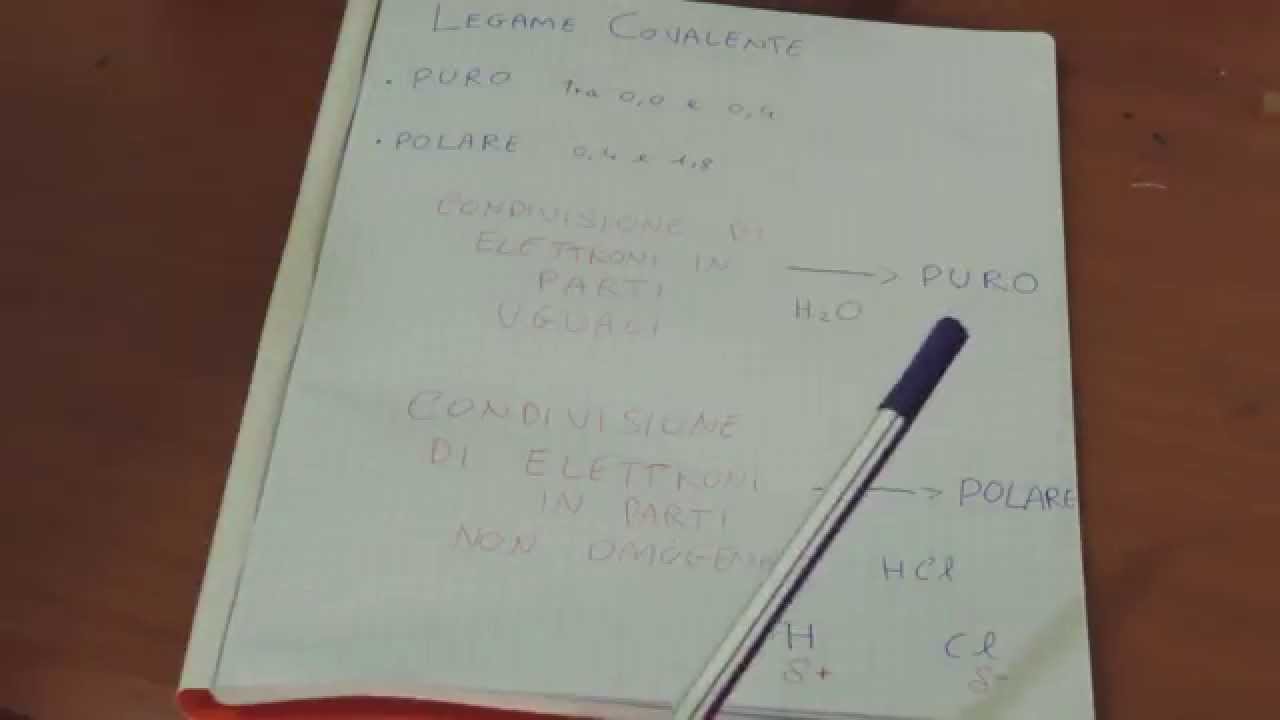 LEGAME COVALENTE
· PURO tra 0,0 e 0,4
· POLARE 0,4 e 1,8
CONDIVISIONE DI
ELETTRONI IN
PARTI
UGUALI
→ PURO
H₂O
CONDIVISIONE
DI ELETTRONI
IN PARTI
NON OMOGENEE
→ POLARE
HCl
H Cl
δ+ δ-